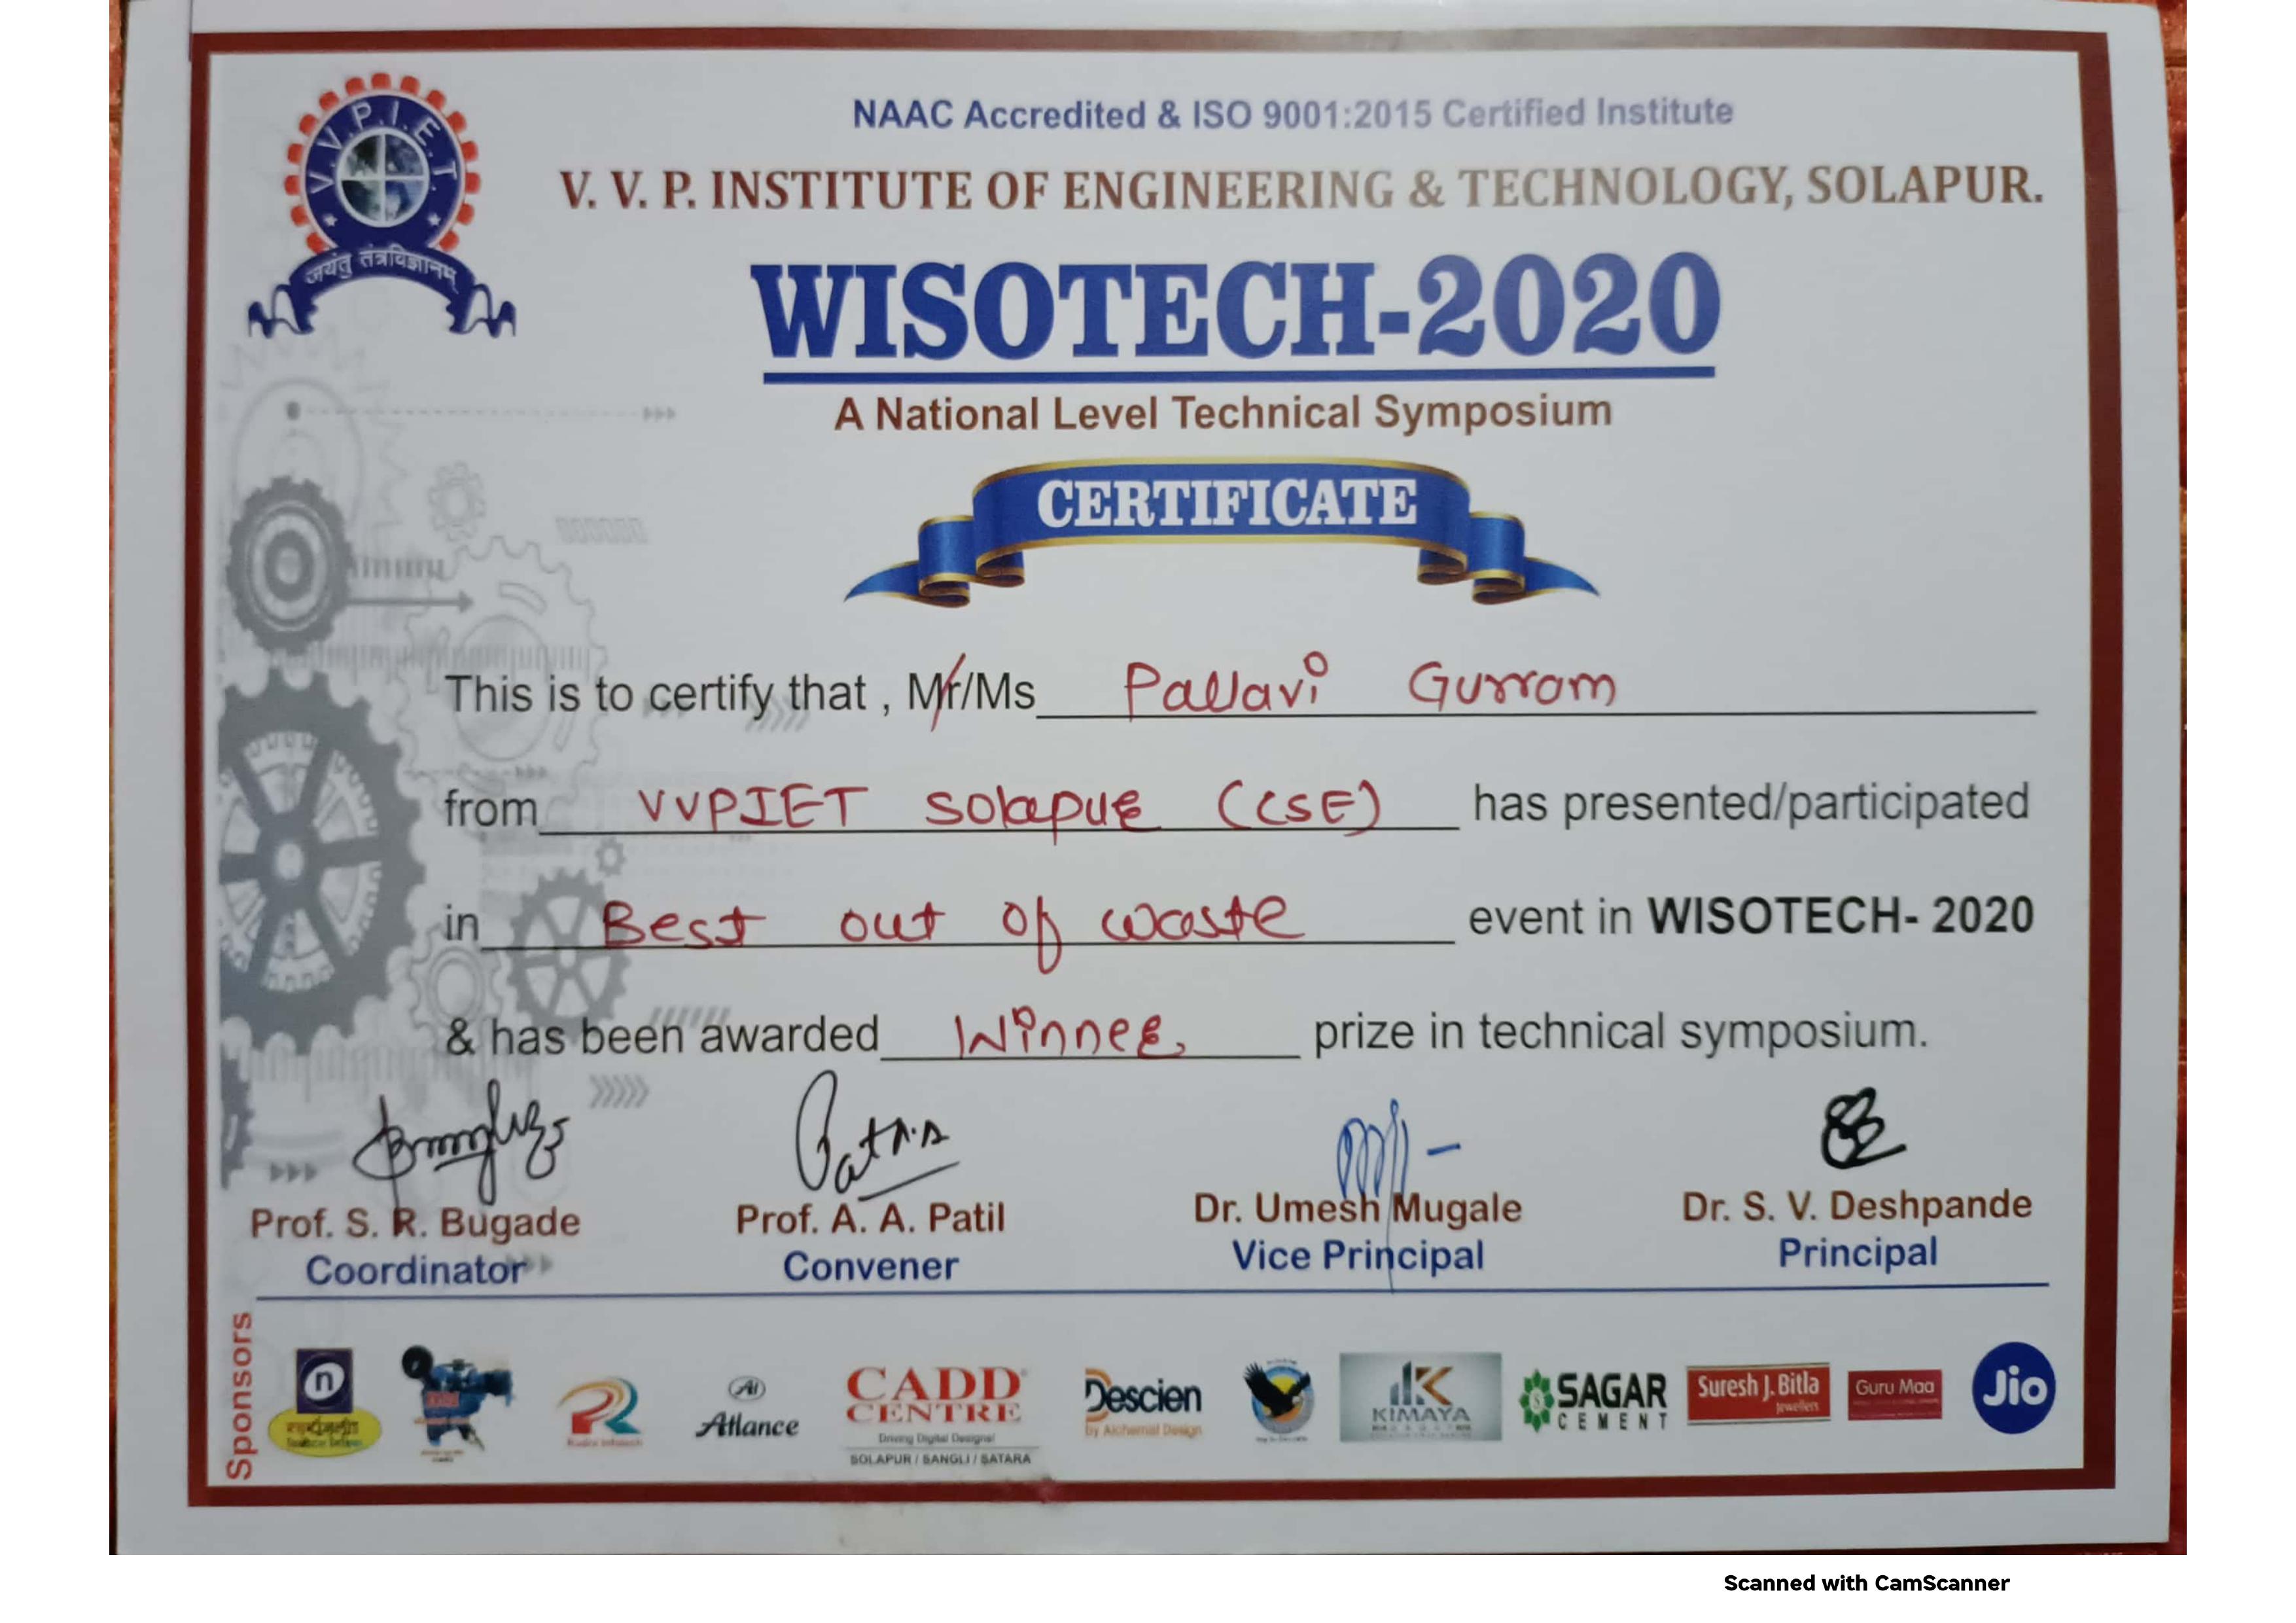 V.V.P.I.E.T.
जयंतु तंत्रविज्ञानम्
NAAC Accredited & ISO 9001:2015 Certified Institute
V. V. P. INSTITUTE OF ENGINEERING & TECHNOLOGY, SOLAPUR.
WISOTECH-2020
A National Level Technical Symposium
CERTIFICATE
This is to certify that , Mr/Ms Pallavi Gurram
from VVPIET Solapur (CSE) has presented/participated
in Best out of waste event in WISOTECH- 2020
& has been awarded Winner, prize in technical symposium.
Prof. S. R. Bugade Prof. A. A. Patil Dr. Umesh Mugale Dr. S. V. Deshpande
Coordinator Convener Vice Principal Principal
Sponsors
n
R
AI Atlance
CADD CENTRE
Driving Digital Designs!
SOLAPUR / SANGLI / SATARA
Descien
by Alchemist Design
KIMAYA
SAGAR CEMENT
Suresh J. Bitla
Jewellers
Guru Maa
Jio
Scanned with CamScanner